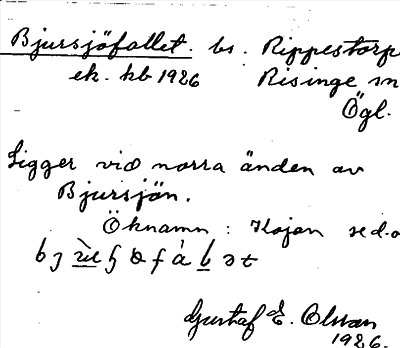 Bjursjöfallet. bs. Rippestorp
ek. kb 1926 Risinge sn
Ögl.
Ligger vid norra änden av
Bjursjön.
Öknamn: Kojan se d.o
Gustaf E. Olsson
1926.